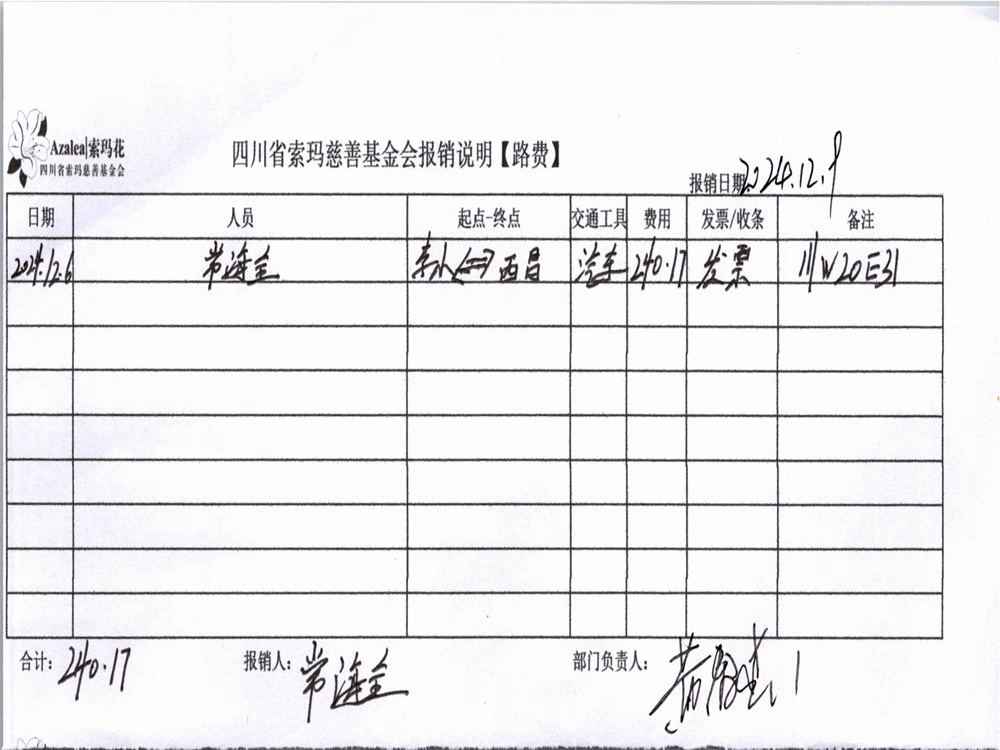 Azalea|索玛花
四川省索玛慈善基金会
四川省索玛慈善基金会报销说明【路费】
报销日期 2024.12.9
日期 人员 起点-终点 交通工具 费用 发票/收条 备注
2024.12.6 常海金 西昌 汽车 240.17 发票 川W20E31
合计: 240.17 报销人: 常海金 部门负责人: